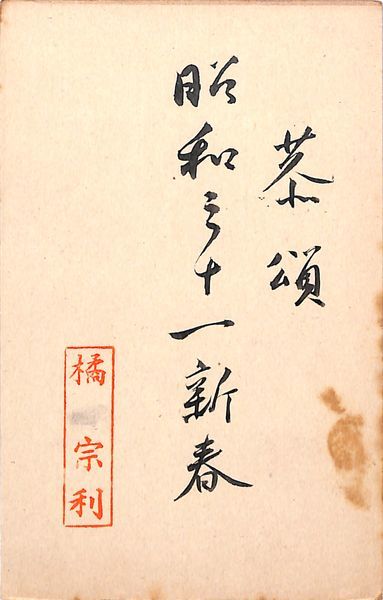 恭頌
昭和三十一新春
橘宗利